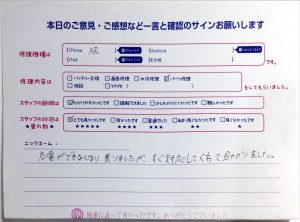 本日のご意見・ご感想など一言と確認のサインお願いします
修理機種は
iPhone XR
Android
iPad
その他
です。
修理内容は
バッテリー交換 画面修理 水没修理 パーツ修理
をしてもらいました。
スタッフの説明は
わかりやすかったです 理解できました 少しわかりにくかったです 難しかったです
スタッフの対応は
★星の数★
とても良かったです 良かったです 普通でした 良くなかったです
ニックネーム:
充電ができなくなり 見てもらいましたが、すぐ対応してくれて助かりました。
無事に直って良かったです。ありがとうございました